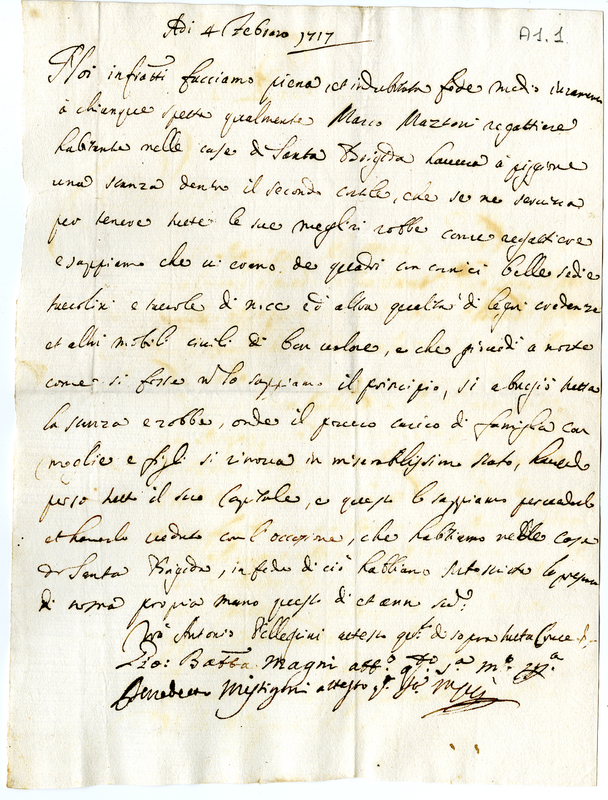 Adi 4 Febraro 1717
A1.1
Noi infratti facciamo piena, et indubitata fede medio
à chiunque spetta qualmente Marco Mazzoni regattiere
habitante nelle case di Santa Brigida haueua à piggione
una stanza dentro il secondo cortile, che se ne seruiua
per tenere tutte le sue megliori robbe come regattiere
e sappiamo che ui erano de quadri con cornici belle sedie
tauolini e tauole di noce ed altra qualità di legni credenze
et altri mobili ciuili di bon ualore, e che giouedì a notte
come si fosse non lo sappiamo il principio, si abrugiò tutta
la stanza e robbe, onde il pouero carico di famiglia con
moglie e figli si ritroua in miserabilissimo stato, hauendo
perso tutto il suo Capitale, e questo lo sappiamo
et hauerlo ueduto con l'occasione, che habitiamo nelle case
di Santa Brigida, in fede di ciò habbiamo sottoscritta la presente
di nostra propria mano questo dì et anno sudº:
Antonio Pellegrini attesto qtº di sopra
Gio: Batta Magni attº qtº sª mº ppª
Benedetto Mistigoni attesto